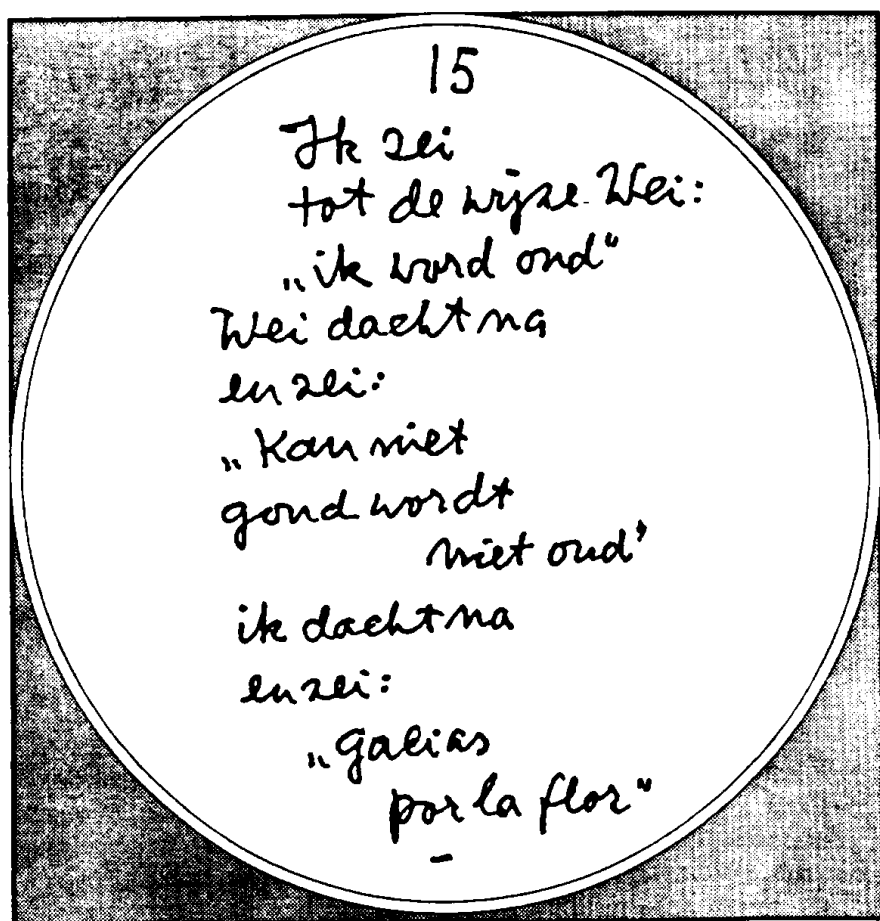 15
Ik zei
tot de wijze Wei:
„ik word oud"
Wei dacht na
en zei:
„Kan niet
goud wordt
niet oud"
ik dacht na
en zei:
„galias
por la flor"